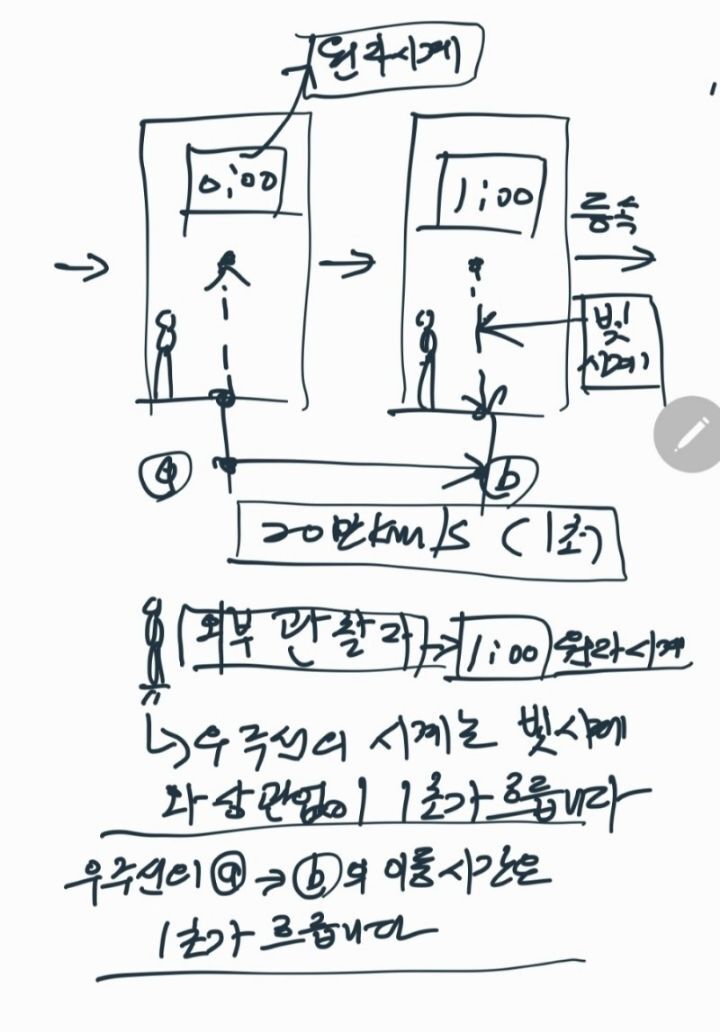 원자시계
0:00
1:00
등속
빛
시계
ⓐ
ⓑ
20만km/s (1초)
외부 관찰자 → 1:00 원자시계
↳ 우주선의 시계는 빛시계
와 상관없이 1초가 흐릅니다
우주선의 ⓐ→ⓑ의 이동시간은
1초가 흐릅니다